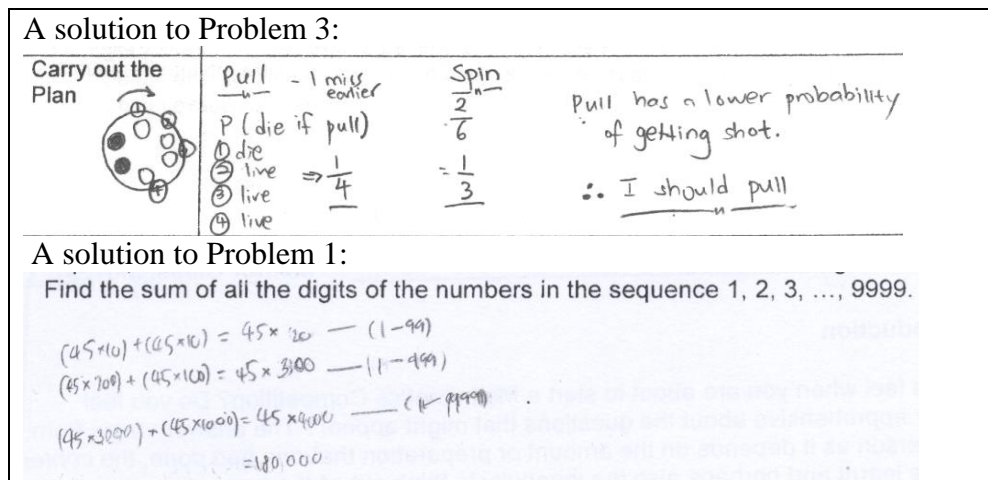 A solution to Problem 3:
Carry out the
Plan
Pull - 1 miss
earlier
P (die if pull)
① die
② live ⇒ 1/4
③ live
④ live
Spin
2/6
= 1/3
Pull has a lower probability
of getting shot.
∴ I should pull
A solution to Problem 1:
Find the sum of all the digits of the numbers in the sequence 1, 2, 3, …, 9999.
(45×10) + (45×10) = 45× 20 — (1-99)
(45×200) + (45×100) = 45 × 300 — (1-999)
(45×3000) + (45×1000) = 45 ×4000 — (1-9999)
=180,000